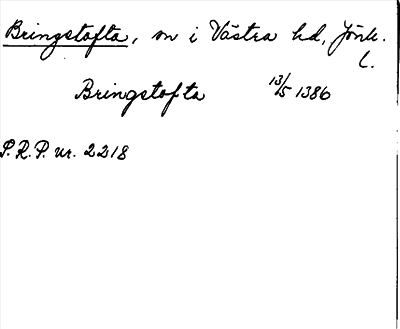 Bringstofta, sn i Västra hd, Jönk.
L.
Bringstofta 13/5 1386
S.R.P. nr. 2218